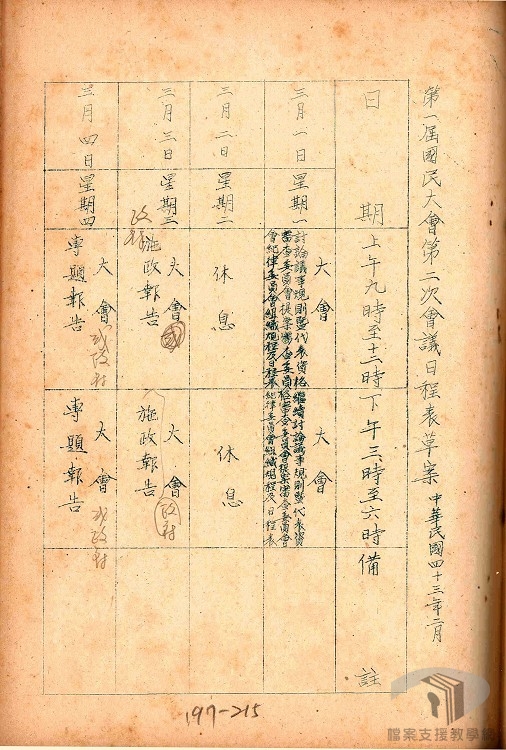 第一屆國民大會第二次會議日程表草案 中華民國四十三年二月
日期 上午九時至十二時 下午三時至六時 備註
三月一日 星期一 大會 討論議事規則暨代表資格審查委員會提案審查委員會紀律委員會組織規程及日程表 大會 繼續討論議事規則暨代表資格審查委員會提案審查委員會紀律委員會組織規程及日程表
三月二日 星期二 休息 休息
三月三日 星期三 大會 施政報告 大會 施政報告
三月四日 星期四 大會 專題報告 大會 專題報告
197-215
檔案支援教學網